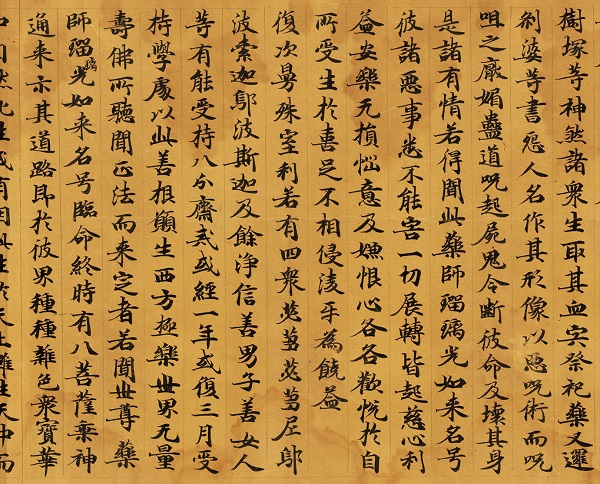 樹塚等神煞諸衆生取其血宍祭祀藥叉邏
刹婆等書怨人名作其形像以惡呪術而呪
咀之厭媚蠱道呪起屍鬼令斷彼命及壞其身
是諸有情若得聞此藥師瑠璃光如来名号
彼諸惡事悉不能害一切展轉皆起慈心利
益安樂无損惱意及嫌恨心各各歡悅於自
所受生於喜足不相侵淩乎為饒益
復次曼殊室利若有四衆苾蒭苾蒭尼鄔
波索迦鄔波斯迦及餘淨信善男子善女人
等有能受持八分齋戒或經一年或復三月受
持學處以此善根願生西方極樂世界无量
壽佛所聽聞正法而未定者若聞世尊藥
師瑠璃光如来名号臨命終時有八菩薩乘神
通来示其道路即於彼界種種雜色衆寶華
中自然化生或有因此生於天上雖生天中而